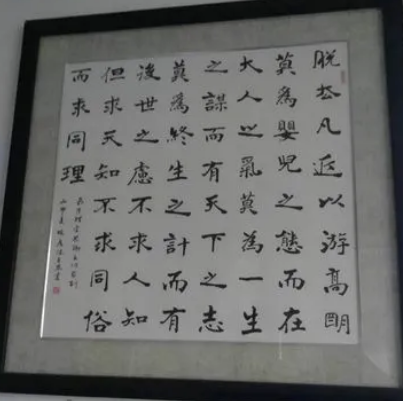 脱去凡近以游高朙
莫為嬰兒之態而在
大人之氣莫為一生
之謀而有天下之志
莫為終生之計而有
後世之慮不求人知
但求天知不求同俗
而求同理